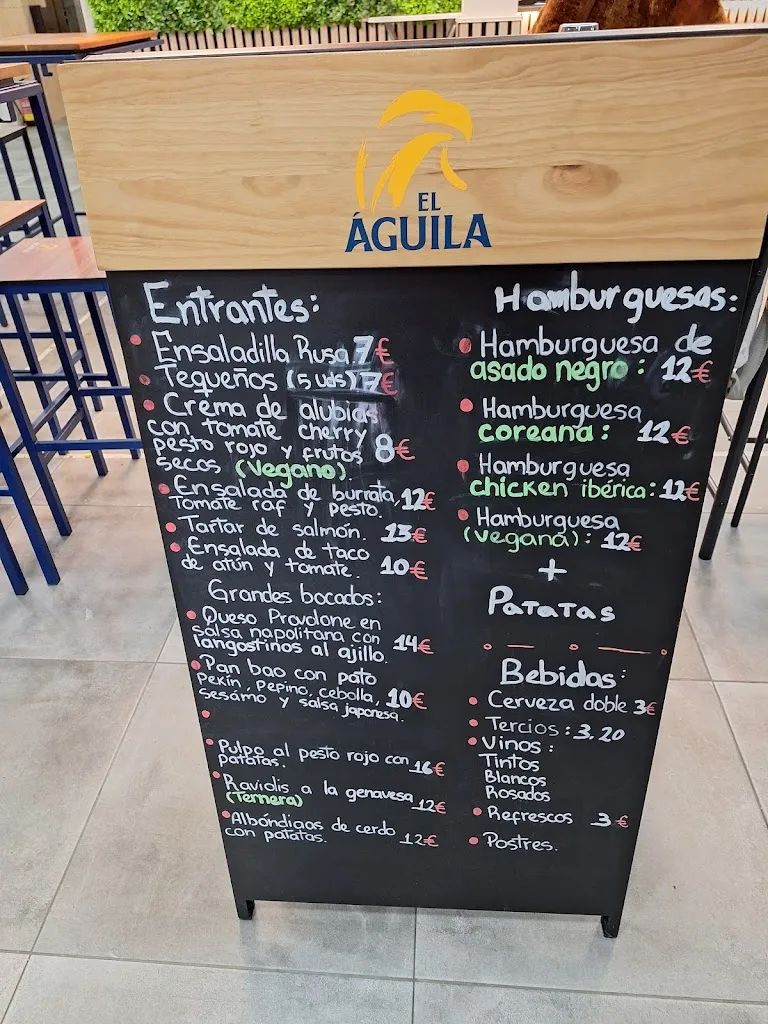 EL
ÁGUILA
Entrantes:
Ensaladilla Rusa 7€
Tequeños (5 uds) 7€
Crema de alubias
con tomate cherry
pesto rojo y frutos 8€
secos (vegano)
Ensalada de burrata, 12€
tomate raf y pesto.
Tartar de salmón. 13€
Ensalada de taco
de atún y tomate. 10€
Grandes bocados:
Queso Provolone en
salsa napolitana con
langostinos al ajillo. 14€
Pan bao con pato
Pekín, Pepino, cebolla, 10€
sesámo y salsa japonesa.
Pulpo al pesto rojo con
patatas. 16€
Raviolis a la genavesa
(Ternera) 12€
Albóndigas de cerdo
con patatas. 12€
Hamburguesas:
Hamburguesa de
asado negro: 12€
Hamburguesa
coreana: 12€
Hamburguesa
chicken ibérica: 12€
Hamburguesa
(vegana): 12€
+
Patatas
Bebidas:
Cerveza doble 3€
Tercios: 3,20
Vinos:
Tintos
Blancos
Rosados
Refrescos 3€
Postres.